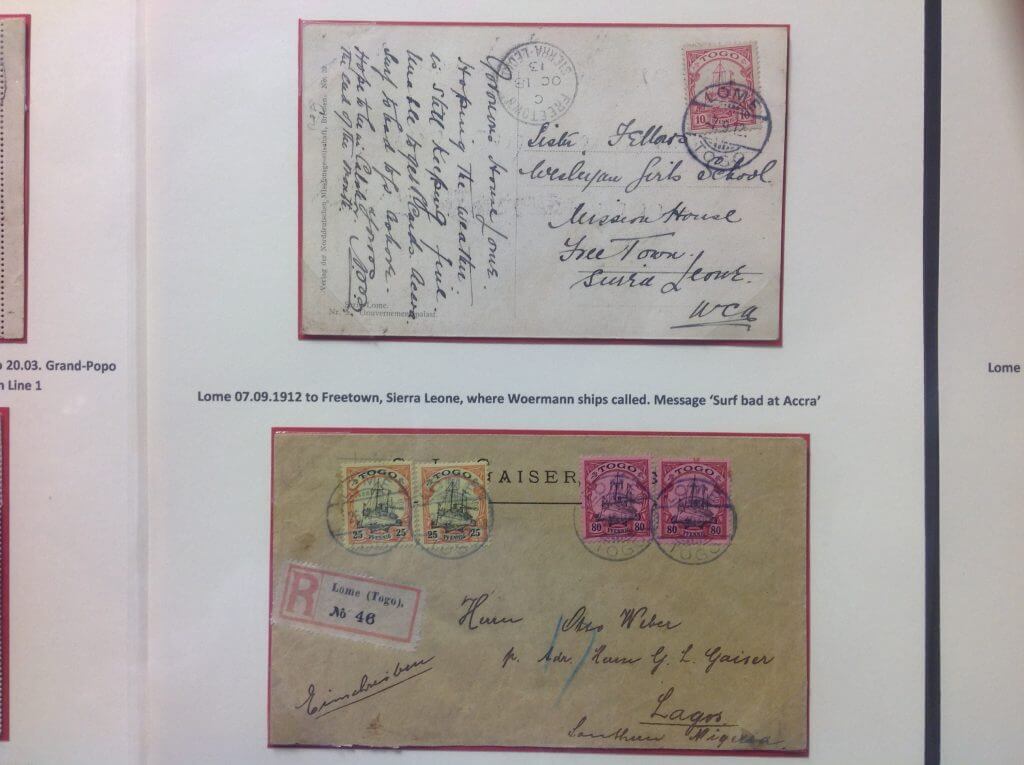 o 20.03. Grand-Popo
n Line 1
TOGO
10
LOME
TOGO
FREETOWN
SIERRA-LEONE
C
OC 13
13
Sister Fellows
Wesleyan Girls School
Mission House
Free Town
Sierra Leone
WCA
Hoping the weather
is still keeping fine
Unable to
Surf too bad
Hope to be in
the end of the month.
Verlag der Norddeutschen Missionsgesellschaft, Bremen.
Lome.
Gouvernementspalast.
Lome 07.09.1912 to Freetown, Sierra Leone, where Woermann ships called. Message ‘Surf bad at Accra’
Lome
GAISER
TOGO
25 25
PFENNIG
TOGO
25 25
PFENNIG
TOGO
80 80
PFENNIG
TOGO
80 80
PFENNIG
TOGO
TOGO
R
Lome (Togo).
No 46
Herrn Otto Weber
p. Adr. Herrn G. L. Gaiser
Lagos
Southern Nigeria
Einschreiben